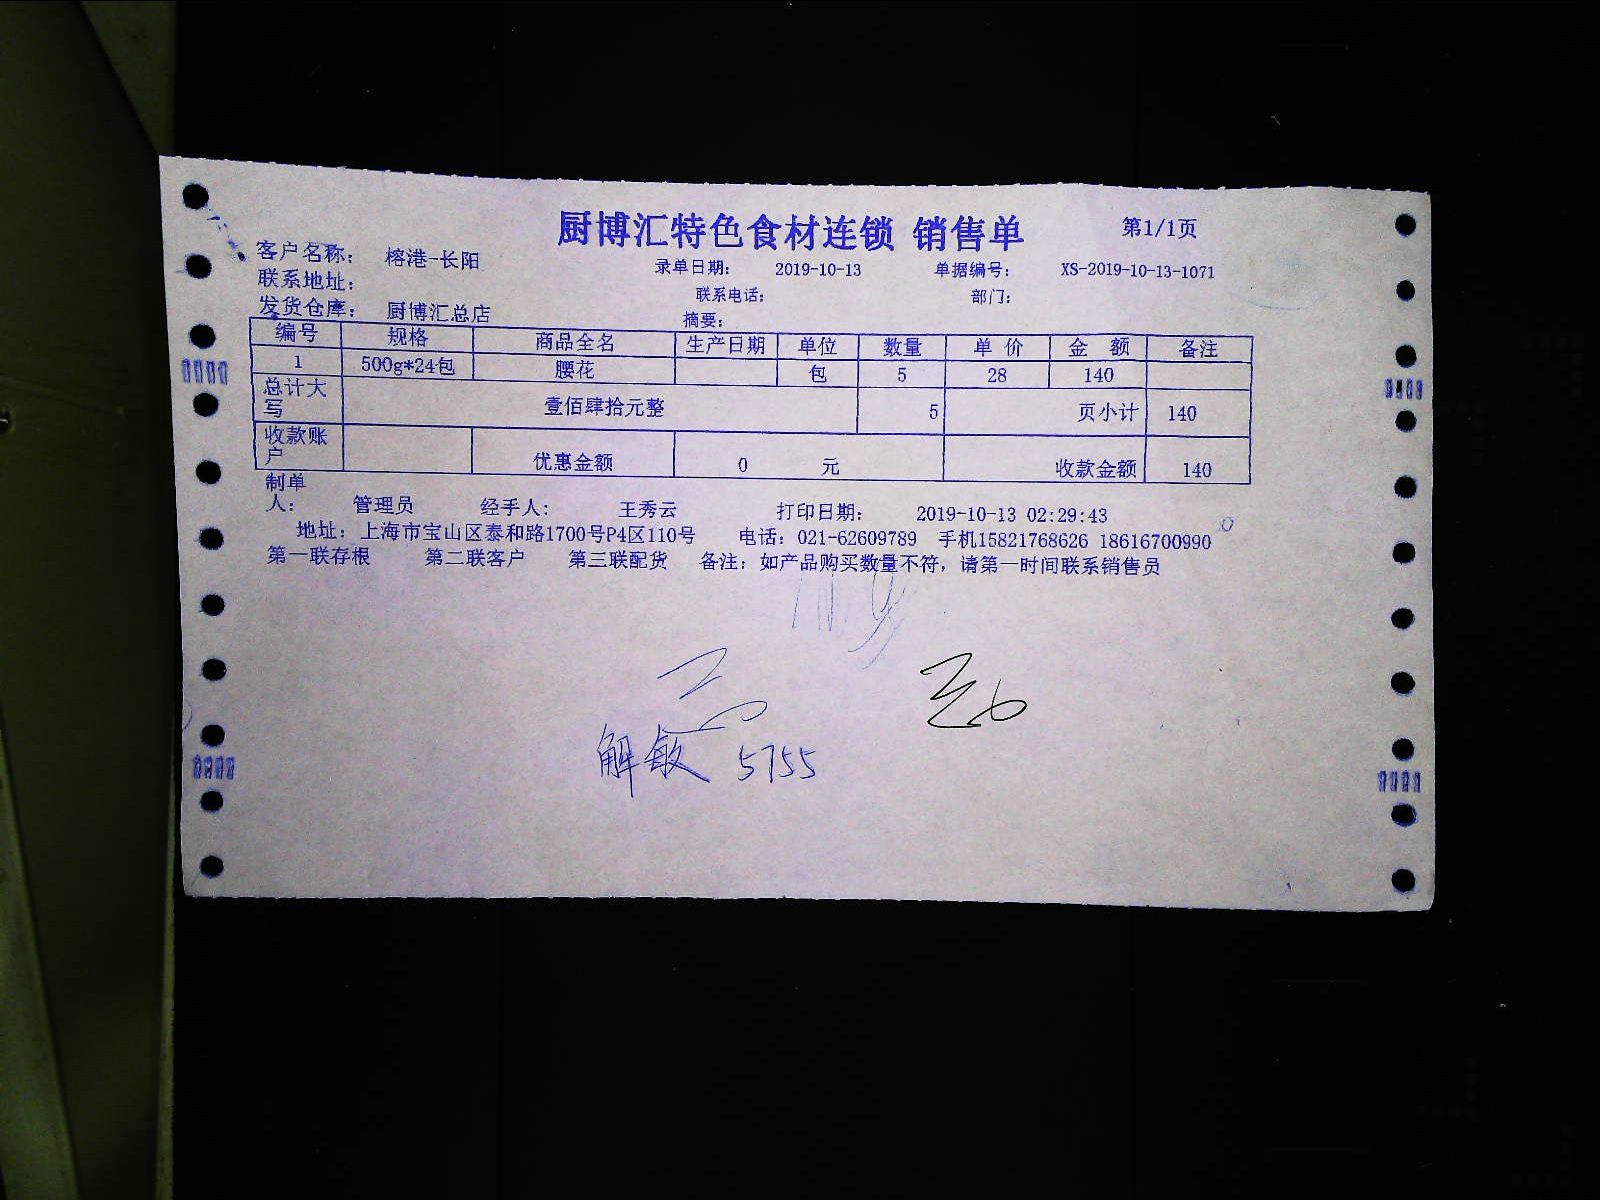 厨博汇特色食材连锁 销售单 第1/1页
客户名称： 榕港-长阳 录单日期： 2019-10-13 单据编号： XS-2019-10-13-1071
联系地址： 联系电话： 部门：
发货仓库： 厨博汇总店 摘要：
编号 规格 商品全名 生产日期 单位 数量 单 价 金 额 备注
1 500g*24包 腰花 包 5 28 140
总计大写 壹佰肆拾元整 5 页小计 140
收款账户 优惠金额 0 元 收款金额 140
制单人： 管理员 经手人： 王秀云 打印日期： 2019-10-13 02:29:43
地址：上海市宝山区泰和路1700号P4区110号 电话：021-62609789 手机15821768626 18616700990
第一联存根 第二联客户 第三联配货 备注：如产品购买数量不符，请第一时间联系销售员
5755